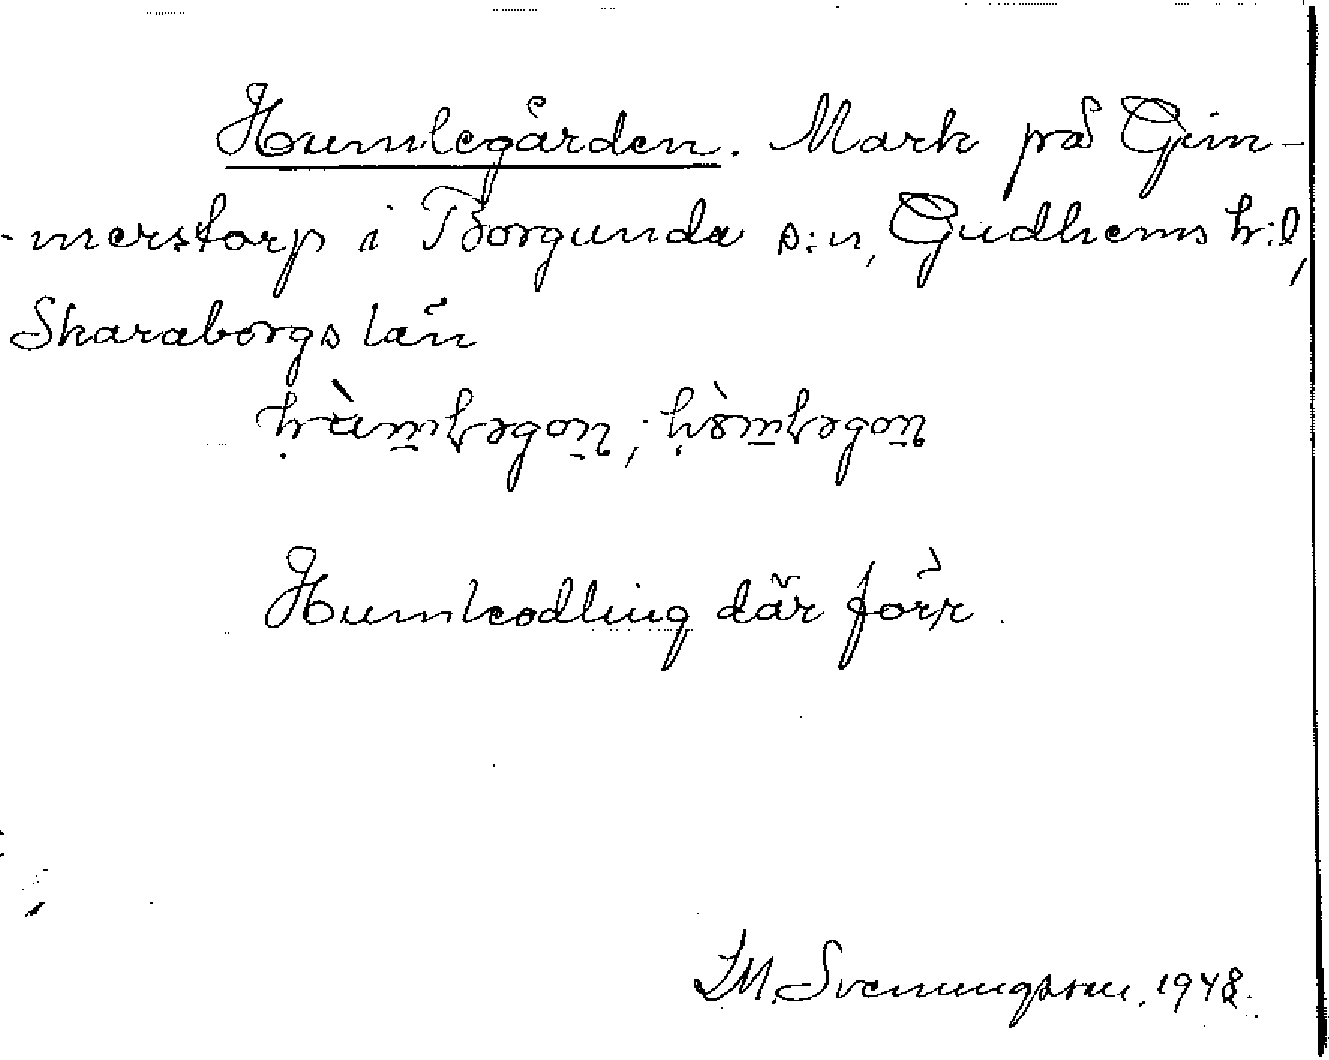 Humlegården. Mark på Gim-
-merstorp i Borgunda s:n, Gudhems h:d,
Skaraborgs län
Humleodling där förr.
I.M. Svenungsson. 1948.